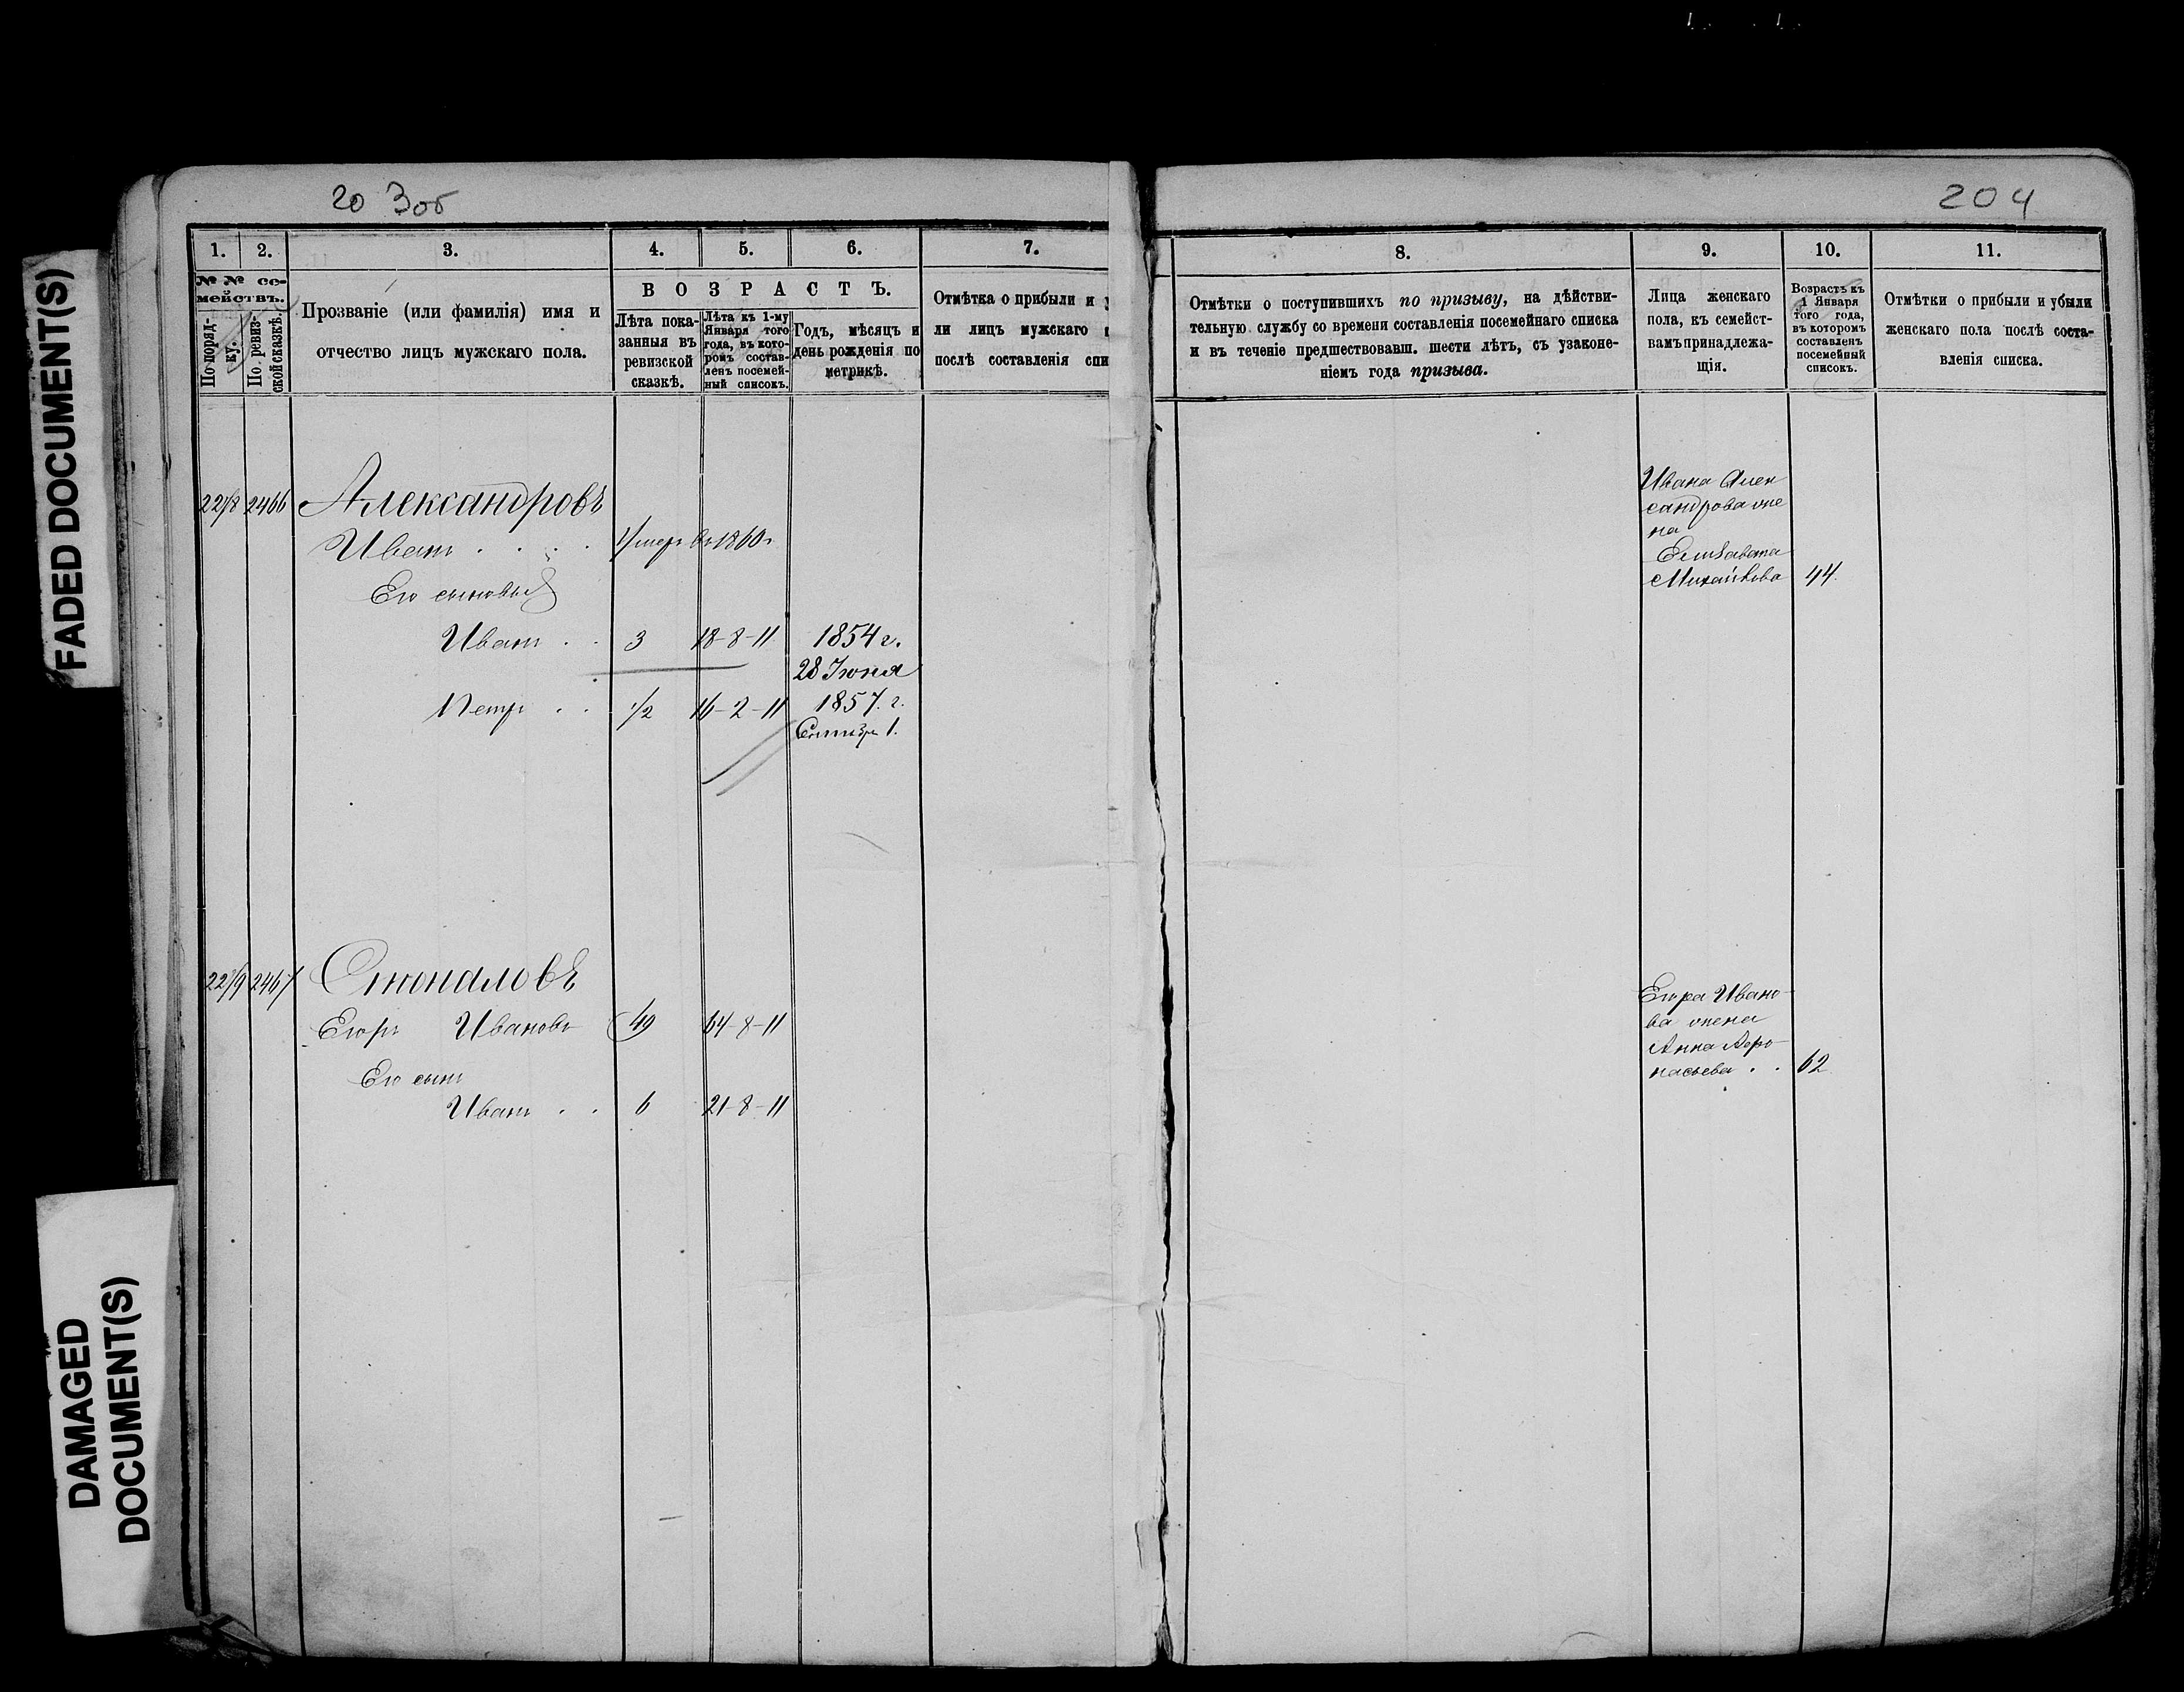 FADED DOCUMENT(S)
DAMAGED
DOCUMENT(S)
203об
204
1.
2.
3.
4.
5.
6.
7.
№ № се-
мействъ.
По поряд-
ку.
По ревиз-
ской сказкѣ.
Прозваніе (или фамилія) имя и
отчество лицъ мужскаго пола.
ВОЗРАСТЪ.
Лѣта пока-
занныя въ
ревизской
сказкѣ.
Лѣта къ 1-му
Января того
года, въ кото-
ромъ состав-
ленъ посемей-
ный списокъ.
Годъ, мѣсяцъ и
день рожденія по
метрикѣ.
Отмѣтка о прибыли и у
ли лицъ мужскаго
послѣ составленія спи
8.
9.
10.
11.
Отмѣтки о поступившихъ по призыву, на дѣйстви-
тельную службу со времени составленія посемейнаго списка
и въ теченіе предшествовавш. шести лѣтъ, съ узаконе-
ніемъ года призыва.
Лица женскаго
пола, къ семейст-
вамъ принадлежа-
щія.
Возрастъ къ
1 Января
того года,
въ которомъ
составленъ
посемейный
списокъ.
Отмѣтки о прибыли и убыли
женскаго пола послѣ соста-
вленія списка.
2218 2466 Александровъ
Иванъ . . . . Умеръ въ 1860 г
Его сыновья
Иванъ . . 3 18-8-11 1854 г.
28 Іюня
Петръ . . 1/2 16-2-11 1857. г.
Сентябр 1.
Ивана Алек
сандрова же
на
Елизавета
Михайлова 44.
2219 2467
Егоръ Ивановъ 49 64-8-11
Его сынъ
Иванъ . . 6 21-8-11
Егора Ивано-
ва жена
Анна Афо-
насьева . . 62